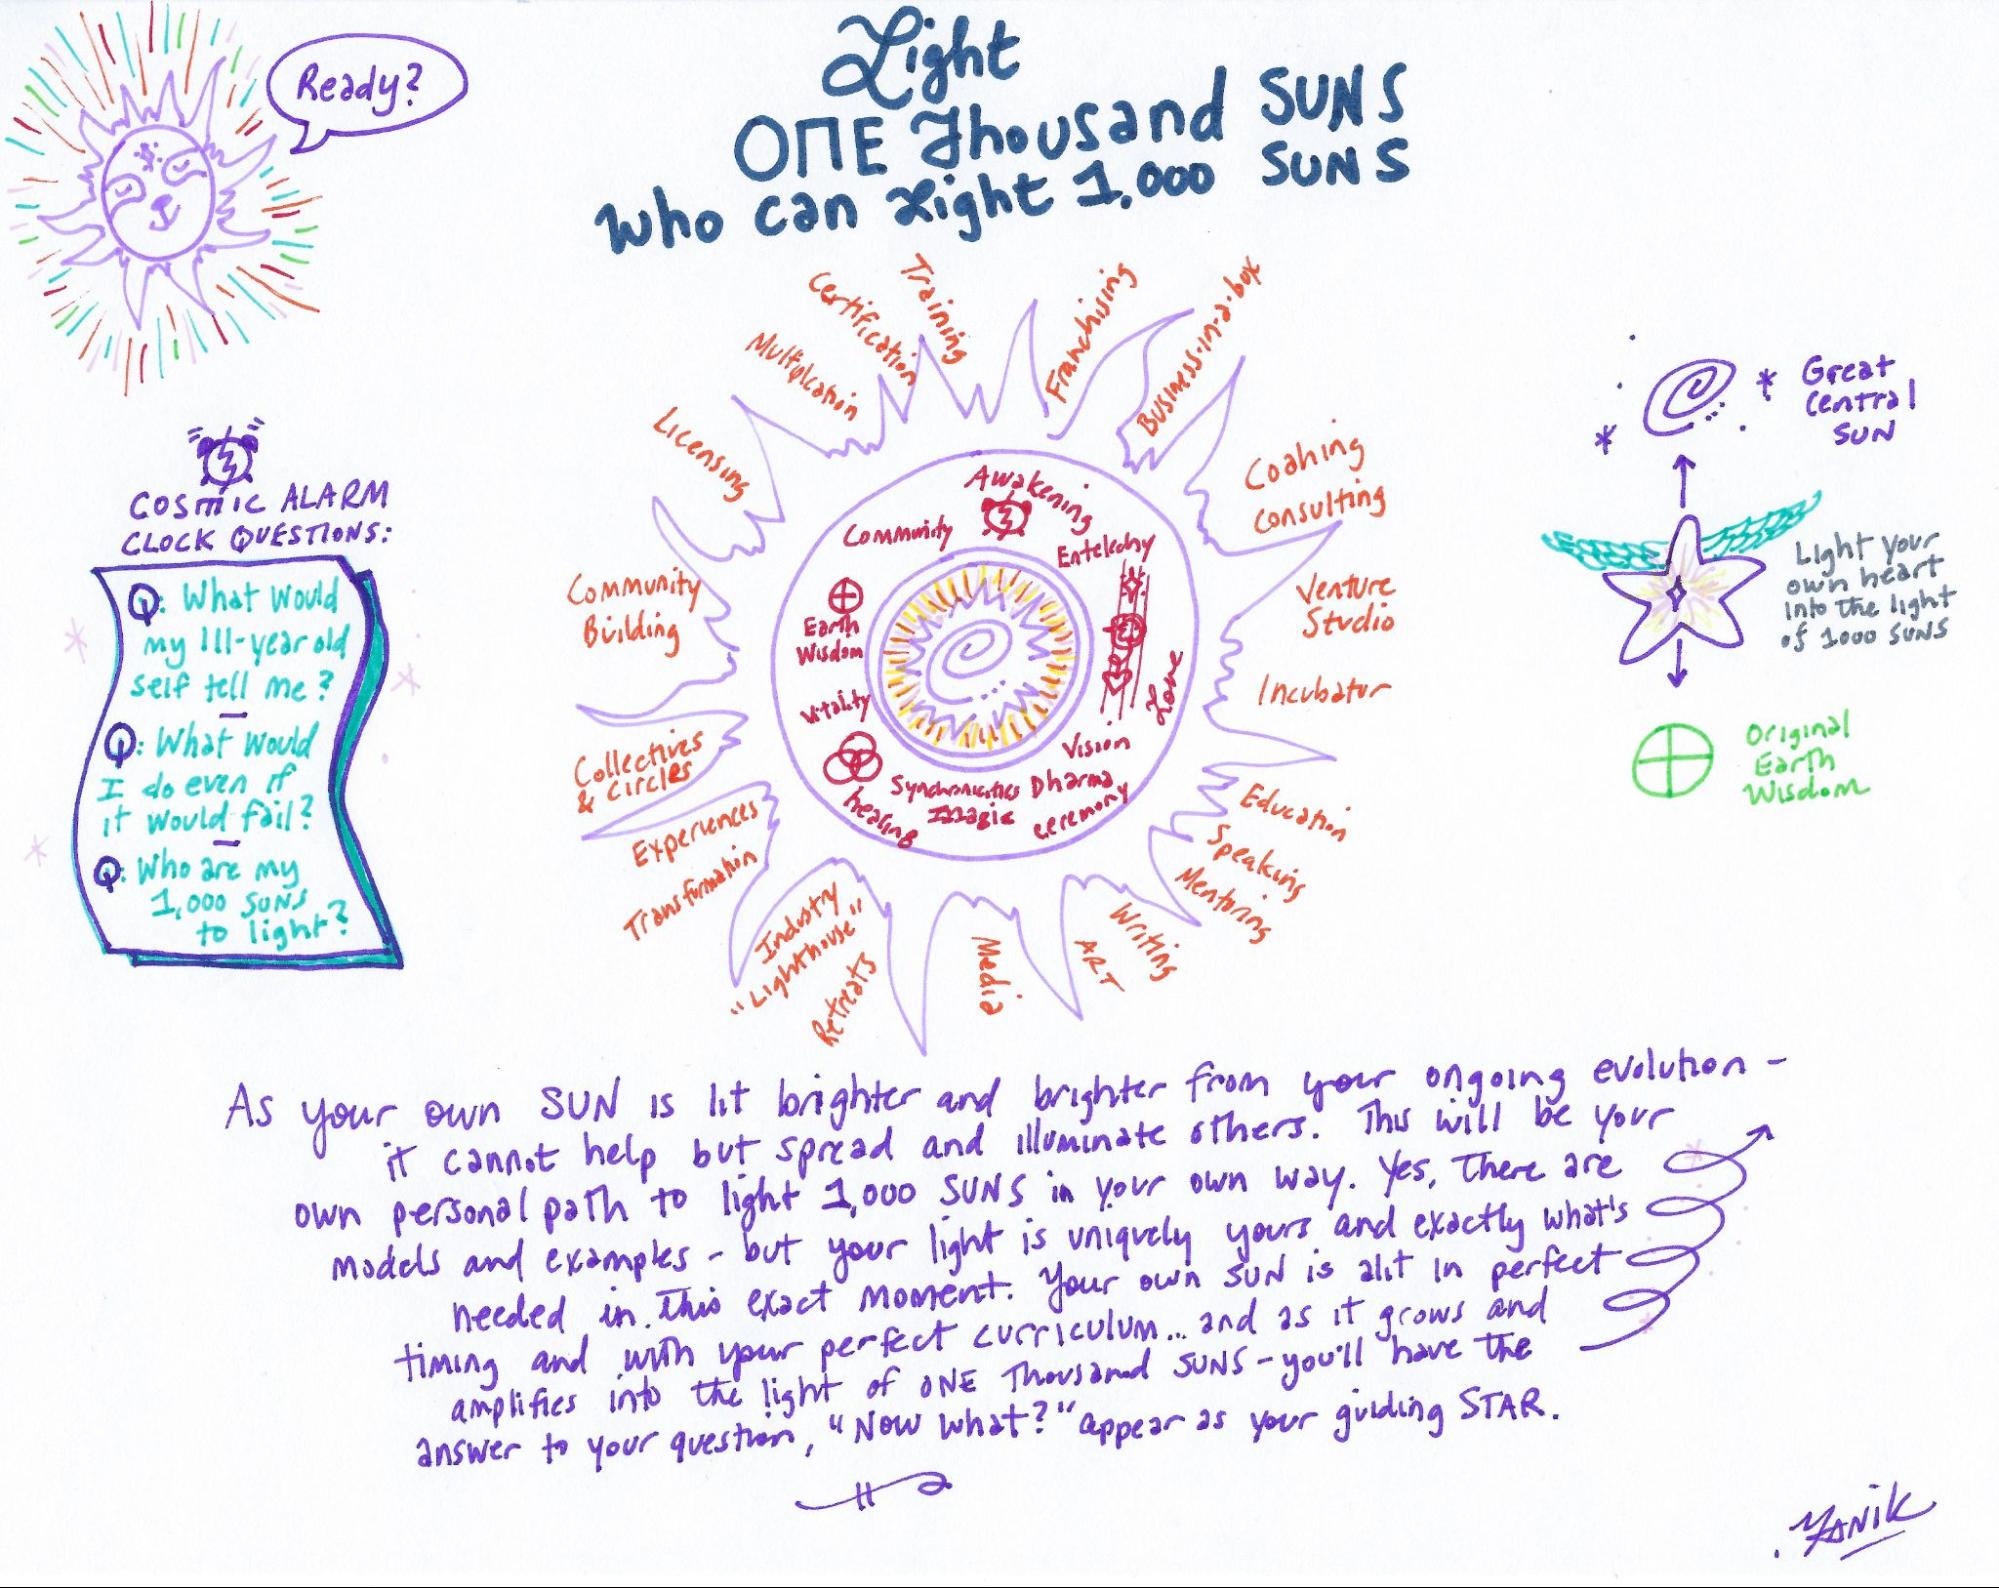 Light
ONE Thousand SUNS
Who can Light 1,000 SUNS
Ready?
COSMIC ALARM
CLOCK QUESTIONS:
Q: What would
my 111-year old
self tell me?
Q: What would
I do even if
it would fail?
Q: Who are my
1,000 SUNS
to light?
Licensing
Multiplication
Certification
Training
Franchising
Business-in-a-box
Coahing
Consulting
Venture
Studio
Incubator
Education
Speaking
Mentoring
Writing
ART
Media
Retreats
Industry
"Lighthouse"
Transformation
Experiences
Collectives
& Circles
Community
Building
Awakening
Community
Entelechy
Earth
Wisdom
Love
Vitality
Vision
Healing
Synchronicities
Magic
Dharma
Ceremony
Great
Central
SUN
Light your
own heart
into the light
of 1000 SUNS
Original
Earth
Wisdom
As your own SUN is lit brighter and brighter from your ongoing evolution -
it cannot help but spread and illuminate others. This will be your
own personal path to light 1,000 SUNS in your own way. Yes, there are
models and examples - but your light is uniquely yours and exactly what's
needed in this exact moment. Your own SUN is alit in perfect
timing and with your perfect curriculum... and as it grows and
amplifies into the light of ONE Thousand SUNS - you'll have the
answer to your question, "Now what?" appear as your guiding STAR.
YANIK